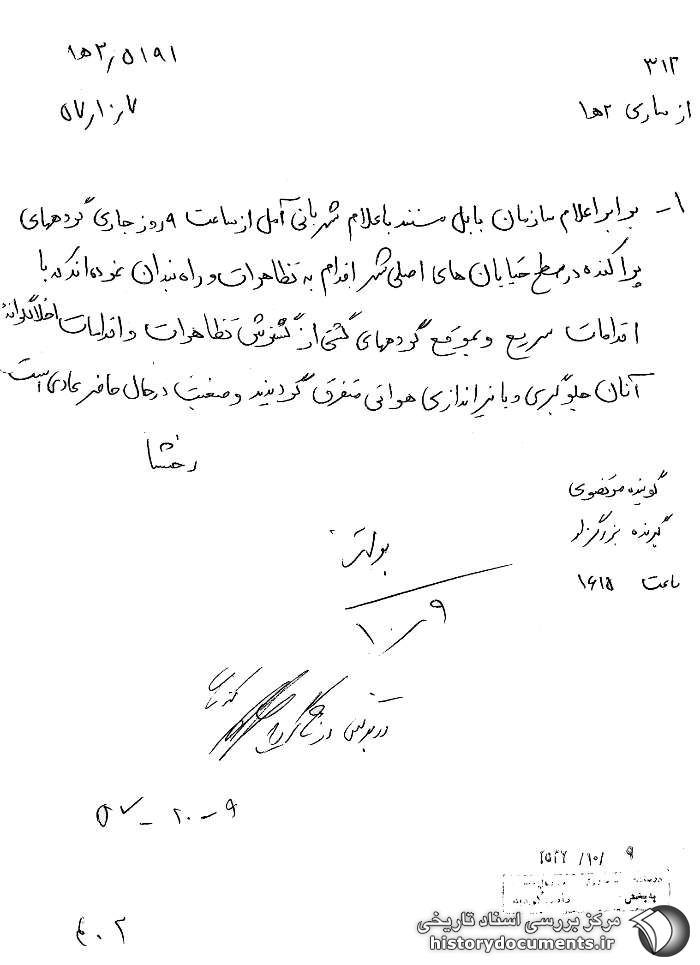 ۳۱۲
۲ها/۵۱۹۱
از ساری ۲ها
۷/۱۰/۵۷
۱- برابر اعلام سازمان بابل مستند باعلام شهربانی آمل از ساعت ۹ روز جاری گروههای
پراکنده در سطح خیابان های اصلی شهر اقدام به تظاهرات و راه بندان نموده اند که با
اقدامات سریع و بموقع گروههای گشتی از گسترش تظاهرات و اقدامات اخلالگرانهٔ
آنان جلوگیری و با تیراندازی هوائی متفرق گردیدند وضعیت در حال حاضر عادی است.
رخشا
گوینده مرتضوی
گیرنده بزرگزاد
ساعت ۱۶۱۵
بولتن
۹/۱۰
در بولتن درج
۹-۱۰-۵۷
۹ /۱۰/ ۲۵۳۷
مرکز بررسی اسناد تاریخی
historydocuments.ir
۴۰۲